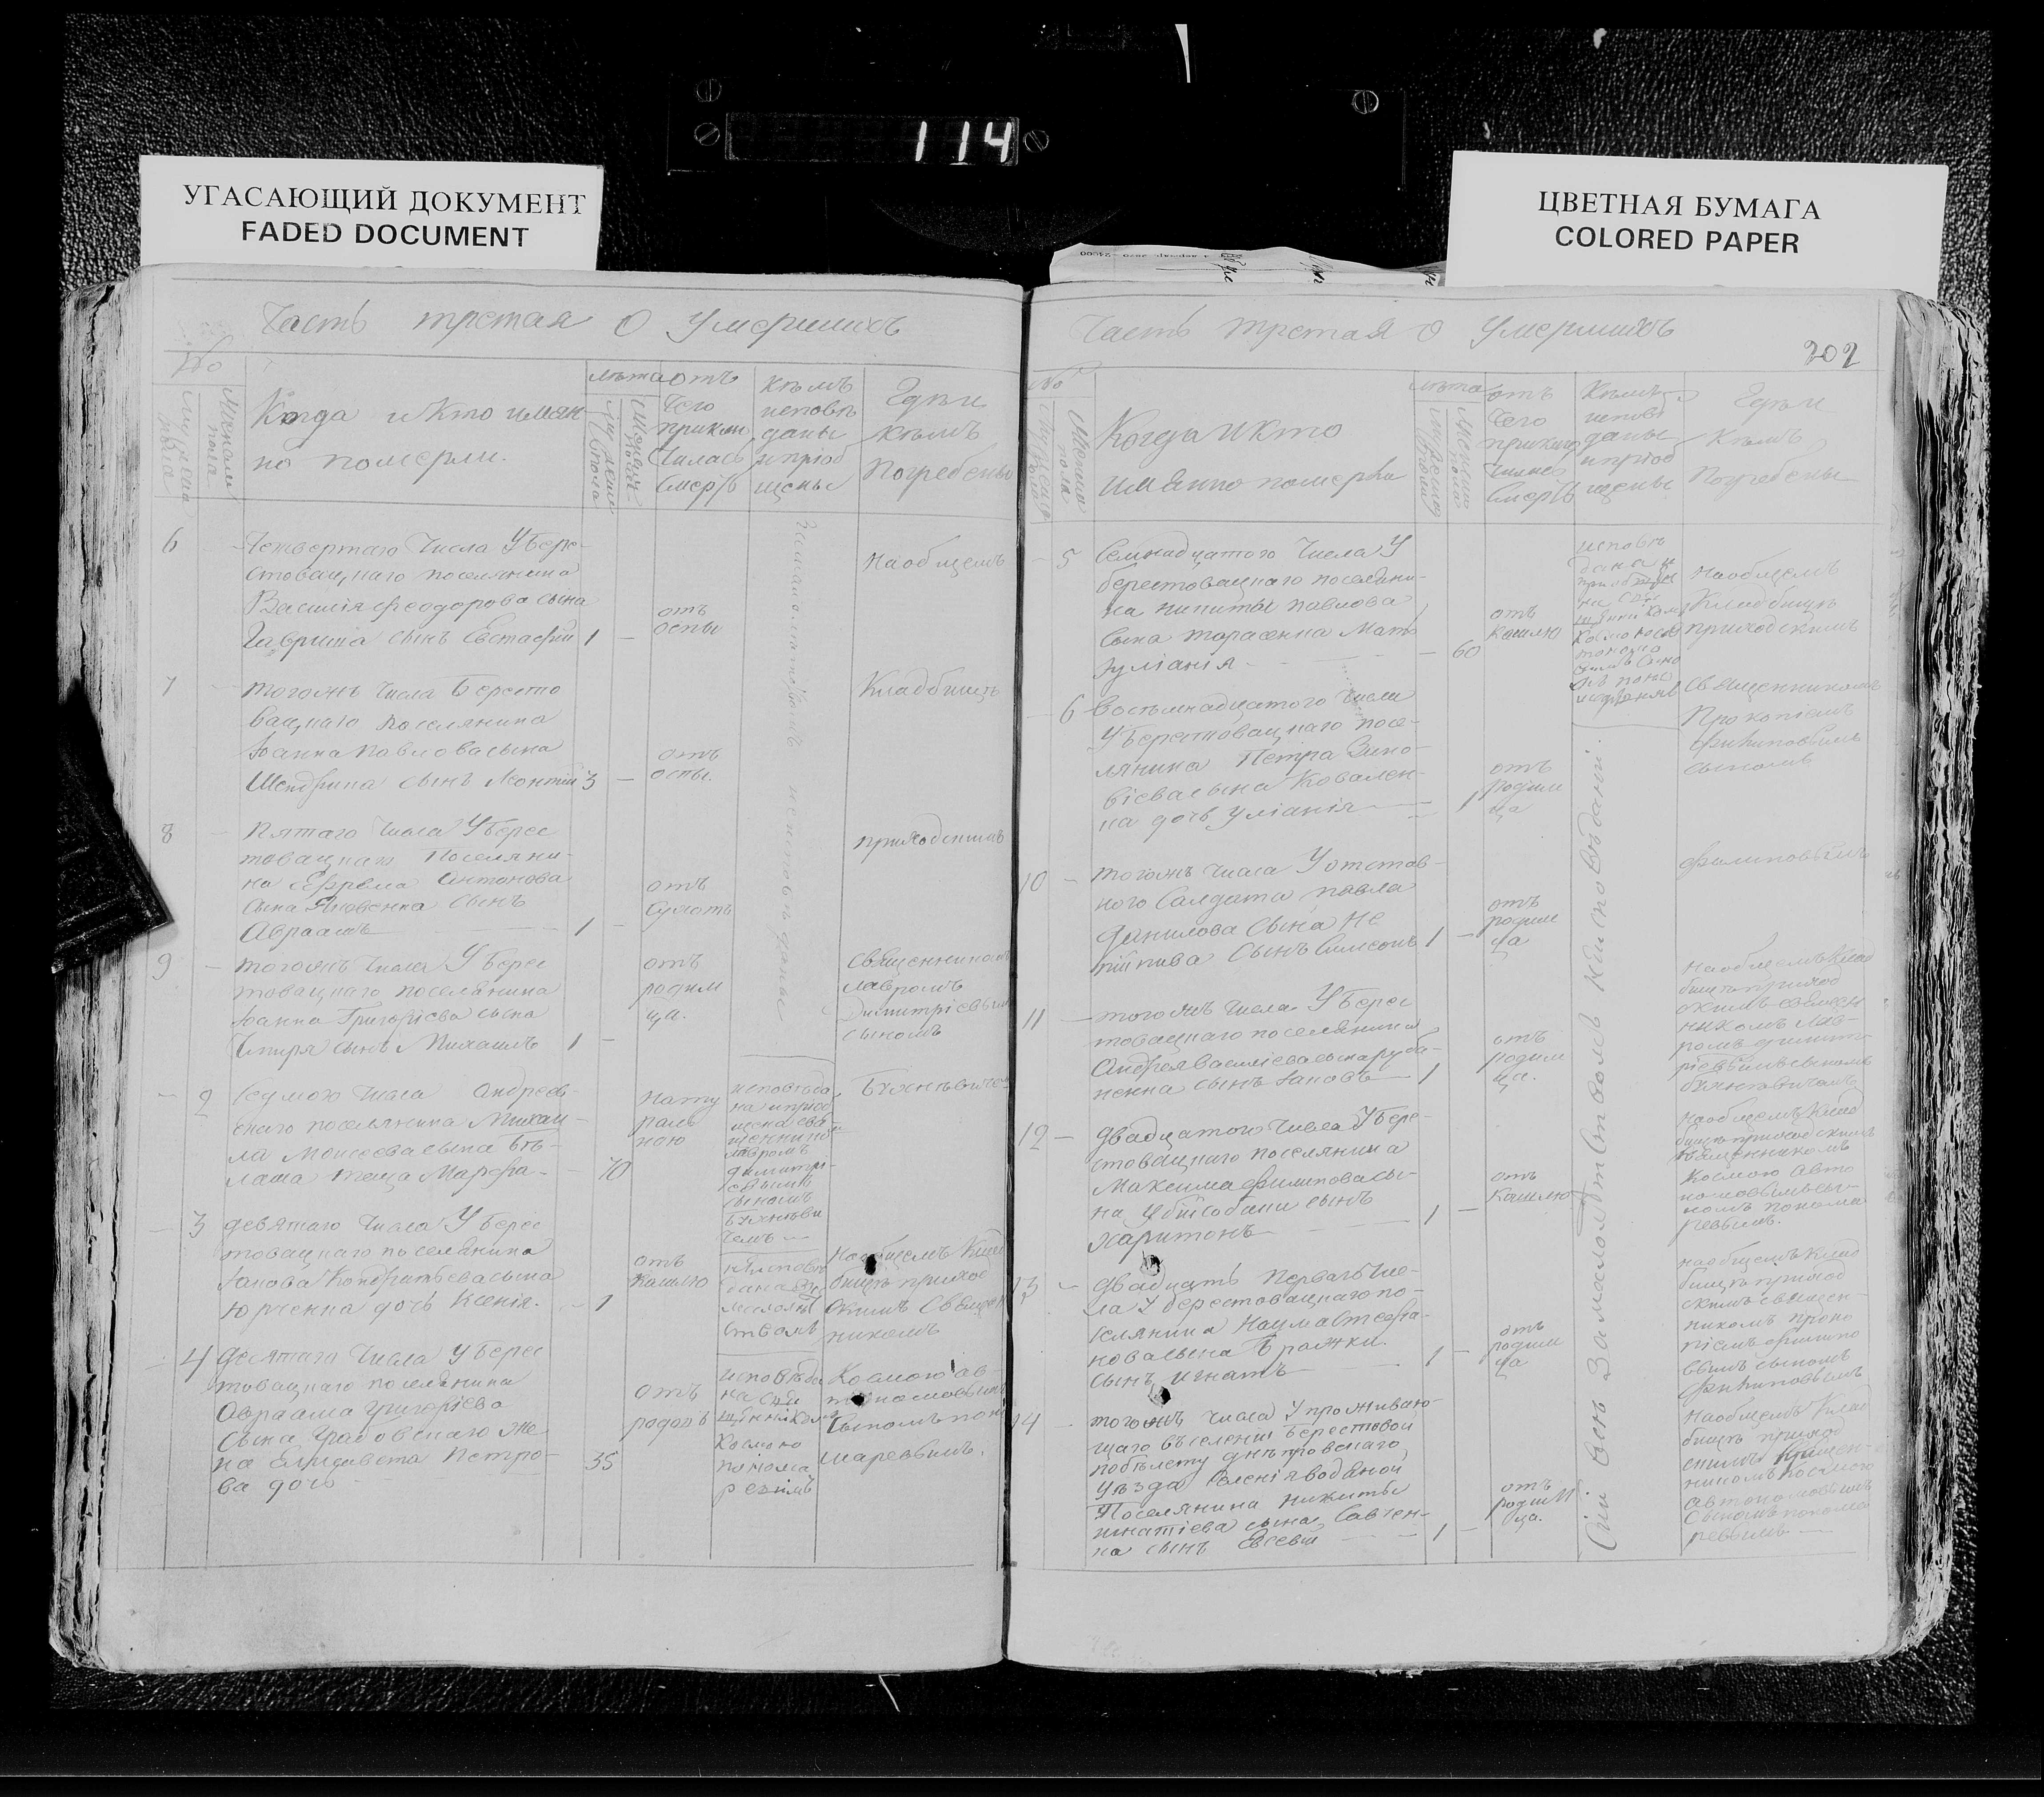 114
УГАСАЮЩИЙ ДОКУМЕНТ
FADED DOCUMENT
ЦВЕТНАЯ БУМАГА
COLORED PAPER
Часть третая о умершихъ
№
Мужеска пола
Женска пола
Когда и Кто имян-
но померли.
лѣта
отъ
чего
приклю
чилась
смерть
кѣмъ
исповѣ
даны
и пріоб
щены
Гдѣ и
кѣмъ
погребены
6
Четвертаго Числа У Бере-
стовацкаго поселянина
Василія Феодорова сына
Гавриша сынъ Евстафий
1
отъ
оспы
На общемъ
7
тогожъ Числа Бересто
вацкаго поселянина
Іоанна Павлова сына
сынъ
3
отъ
оспы.
Кладбищѣ
8
Пятаго Числа У Берес
товацкаго Поселяни-
на Ефрема Антонова
Сына Яковенка Сынъ
Авраамъ
1
отъ
сухотъ
приходскимъ
9
тогожъ Числа У Берес
товацкаго поселянина
Іоанна Григорієва сына
сынъ Михаилъ
1
отъ
родим
ца.
священникомъ
Лавромъ
Димитріевымъ
сыномъ
2
Седмого Числа Андреев-
скаго поселянина Михаи-
ла Моисеева сына Бѣ-
лаша теща Марфа
70
нату
раль
ною
исповѣда
на и пріоб
щена свя
щенником
Лавромъ
димитрі-
евымъ
сыномъ
3
девятаго Числа У Берес
товацкаго поселянина
Іакова Кондратьева сына
Юрченка дочь Ксенія.
1
отъ
кашлю
На общемъ Клад
бищѣ приход
скимъ Священ
никомъ
4
Десятаго Числа У Берес
товацкаго поселянина
Авраама Григорієва
Сына Грабовскаго Же-
на Елисавета Петро-
ва дочь
35
отъ
родовъ
исповѣда
на
Космою
понома
ревимъ
Космою ав-
тономовымъ
Сыномъ поно
маревымъ.
Часть третая о умершихъ
202
№
Когда и кто
имянно померли
лѣта
отъ
чего
приклю
чилась
смерть
Кѣмъ
исповѣ
даны
и пріоб
щены
Гдѣ и
Кѣмъ
Погребены
5
Семнадцатого Числа У
берестовацкаго поселяни-
на никиты павлова
Сына тарасенка Мать
Іуліанія
60
отъ
кашлю
На общемъ
Кладбищѣ
приходскимъ
Священникомъ
Прокопіемъ
Филиповымъ
сыномъ
6
Восемнадцатого Числа
У Берестовацкаго посе-
лянина Петра Зино-
вієва сына Ковален-
ка дочь Уліанія
1
отъ
родим
ца
10
тогожъ Числа У отстав-
ного Салдата павла
данилова Сына Не
Сынъ Симеонъ
1
отъ
родим
ца
11
тогожъ Числа У Берес
товацкаго поселянина
Андрея Василієва сына Руба-
ненка сынъ Іаковъ
1
отъ
родим
ца.
На общемъ Клад
бищѣ приход
скимъ священ
никомъ Лав-
ромъ димит
ріевымъ сыномъ
12
Двадцатого Числа У Бере-
стовацкаго поселянина
Максима Филипова сы-
на Убийсобаки сынъ
Харитонъ
1
отъ
Кашлю
На общемъ Клад
бищѣ приходскимъ
Священникомъ
Космою Авто
номовымъ сы-
номъ понома
ревымъ.
13
Двадцать Перваго Чис-
ла У берестовацкаго по-
селянина Наума Стефа-
нова сына Бражки.
Сынъ Игнатъ
1
отъ
родим
ца
на общемъ Клад
бищѣ приход
скимъ священ-
никомъ проко
піемъ филипо
вымъ сыномъ
14
тогожъ Числа У прожываю-
щаго въ селеніи Берестовой
по билету днѣпровскаго
уѣзда Селенія водяной
Поселянина Никиты
игнатієва сына, Савчен-
ка сынъ Евсевій
1
отъ
родим
ца.
На общемъ Клад
бищѣ приход
скимъ Священ-
никомъ Космою
автономовымъ
Сыномъ понома
ревымъ
Сіи всѣ за малолѣтствомъ не исповѣданы.